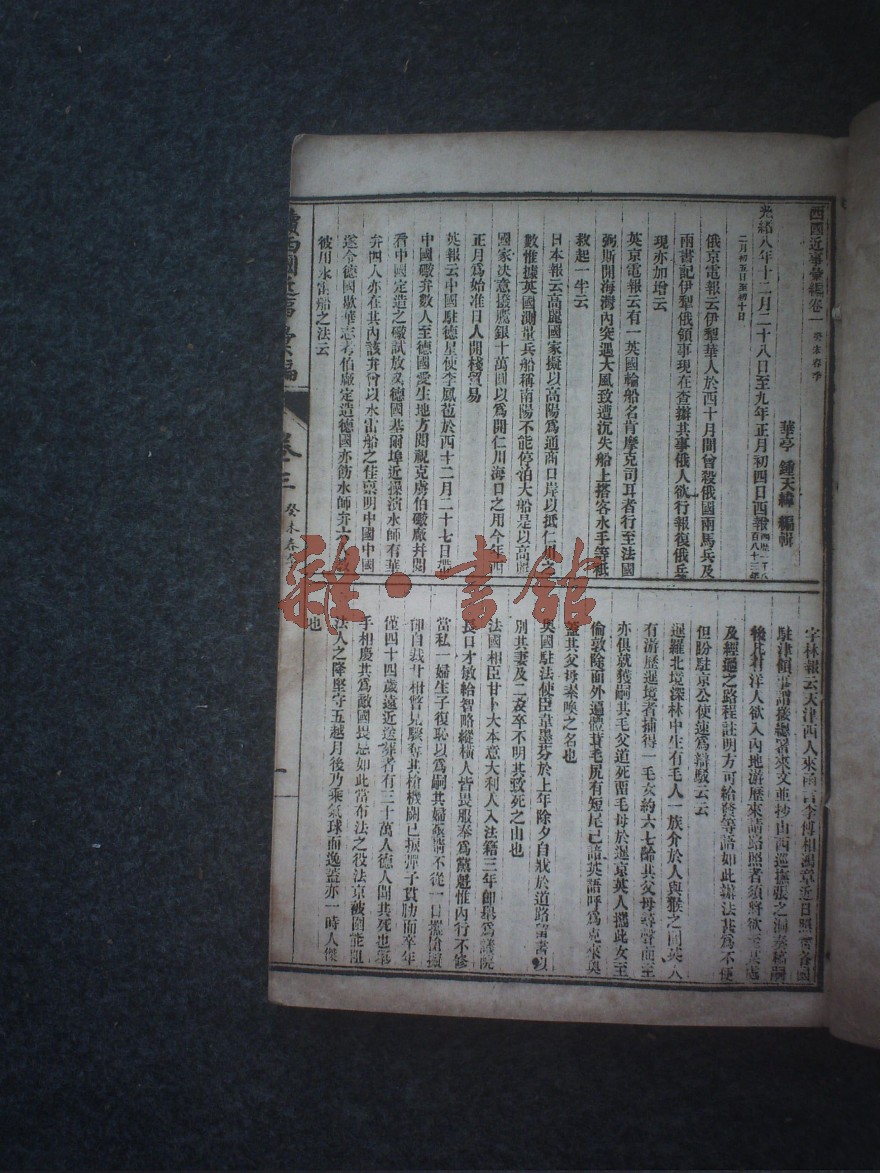 西國近事彙編卷一 癸未春季
華亭 鍾天緯 編輯
光緒八年十二月二十八日至九年正月初四日西報 西歷一千八百八十三年
二月初五日至初十日
俄京電報云伊犂華人於西十月間曾殺俄國兩馬兵及
兩書記伊犂俄領事現在查辦其事俄人欲行報復俄兵
現亦加增云
英京電報云有一英國輪船名肯摩克司耳者行至法國
弼斯開海灣內突遇大風致遭沉失船上搭客水手等祇
救起一半云
日本報云高麗國家擬以高陽為通商口岸以抵仁川之
數惟據英國測量兵船稱南陽不能停泊大船是以高麗
國家决意撥鷹銀十萬圓以為開仁川海口之用今年西
正月為始准日人開棧貿易
英報云中國駐德星使李鳳苞於西十二月二十七日帶
中國礮弁數人至德國愛生地方閱視克虜伯礮廠并閱
看中國定造之礮試放又德國基爾埠近操演水師有華
弁四人亦在其內該弁曾以水雷船之佳稟明中國中國
遂令德國歇華志考伯廠定造德國亦飭水師弁六
彼用水雷船之法云
字林報云天津西人來函言李傅相鴻章近日照會各國
駐津領事謂接總署來文並抄山西巡撫張之洞奏稿嗣
後凡有洋人欲入內地游歷來請路照者須將欲至某處
及經過之路程註明方可給發等語如此辦法甚為不便
但盼駐京公使速為辯駁云云
暹羅北境深林中生有毛人一族介於人與猴之間英人
有游歷暹境者捕得一毛女約六七齡其父母尋聲而至
亦俱就獲嗣其毛父道死留毛母於暹京英人攜此女至
倫敦除面外遍體茸毛尻有短尾已諳英語呼為克來奥
蓋其父母素喚之名也
英國駐法使臣韋墨芬於上年除夕自戕於道路留書以
別其妻及二友卒不明其致死之由也
法國相臣甘卜大本意大利人入法籍三年卽舉為議院
長口才敏給智略縱橫人皆畏服奉為黨魁惟內行不修
當私一婦生子復恥以為嗣其婦藥請不從一日攜槍擬
卽自裁甘相瞥見驟奪其槍機關已捩彈子貫肋而卒年
僅四十四歲遠近送葬者有三十萬人德人聞其死也舉
手相慶其為敵國畏忌如此當布法之役法京被圍能阻
法人之降堅守五越月後乃乘氣球而逸蓋亦一時人傑
也
續西國近事彙編
卷三 癸未春季
一
雜·書館